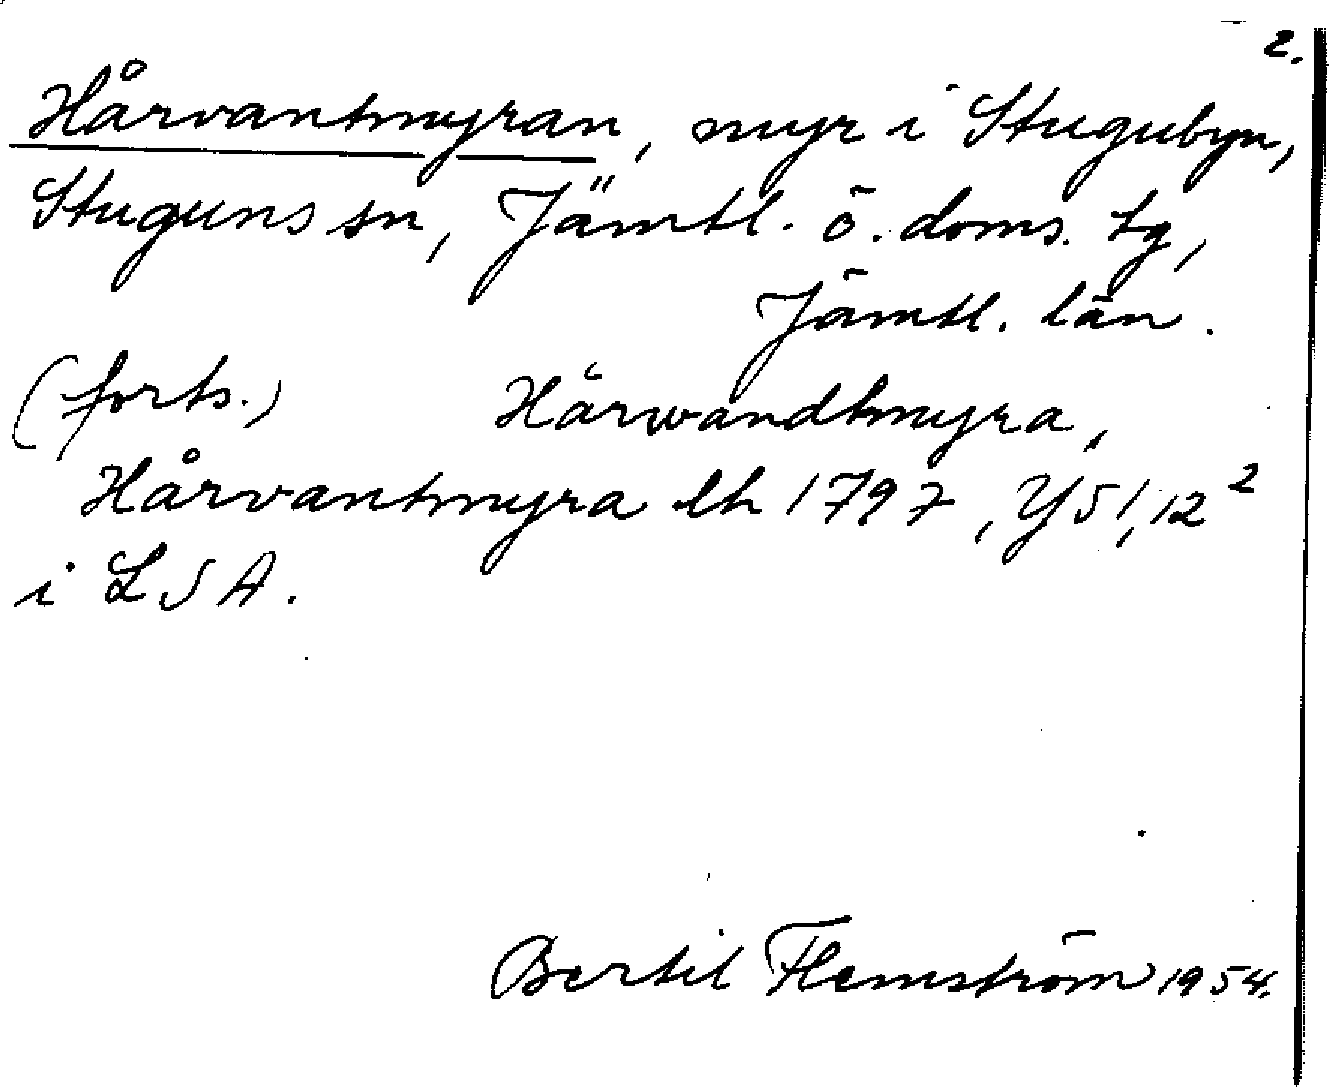 2.
Hårvantmyran, myr i Stugubyn,
Stuguns sn, Jämtl. ö. doms. tg,
Jämtl. län.
(forts.) Hårwandtmyra,
Hårvantmyra lh 1797, Y51,12²
i LSA.
Bertil Flemström 1954.